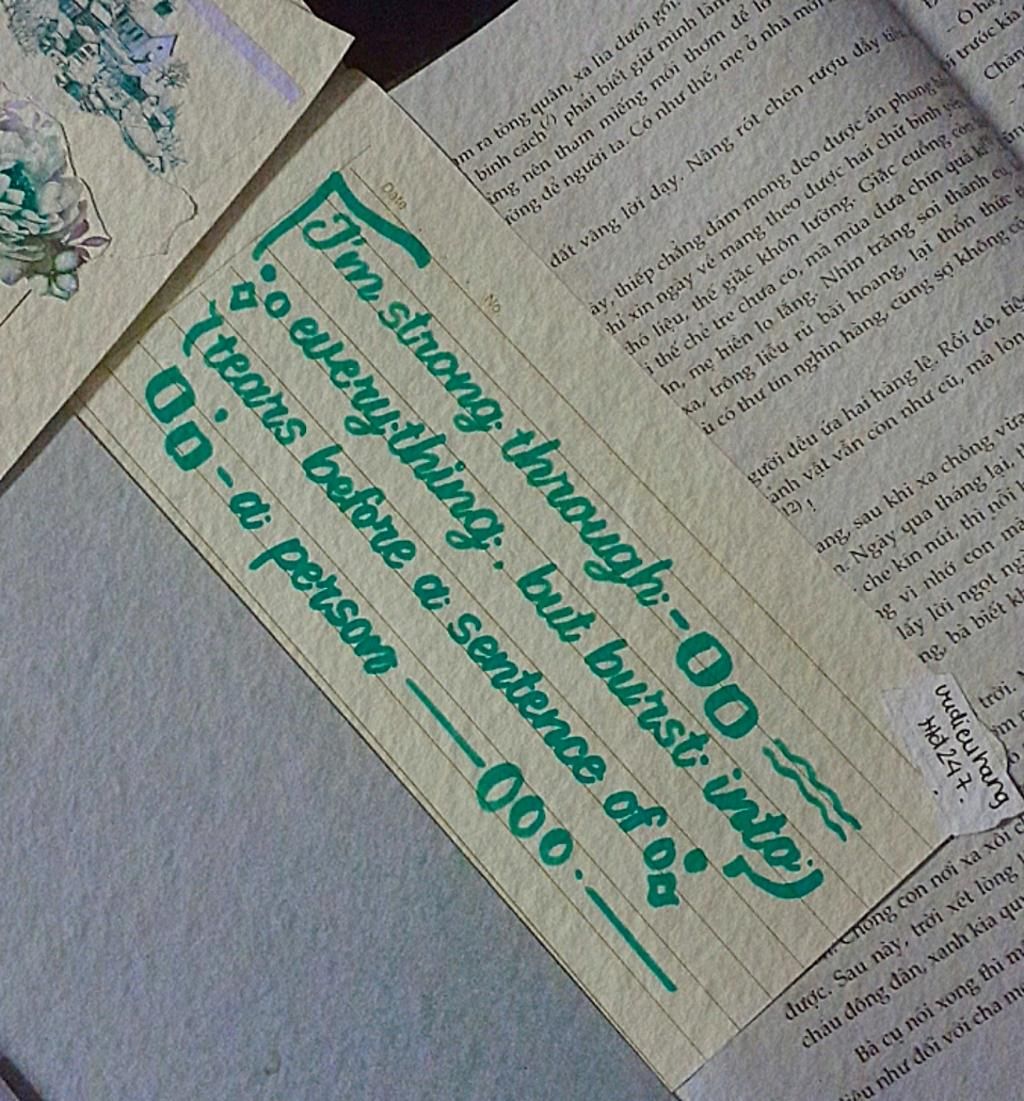 Date
No.
I'm strong through -
everything, but burst into
(tears before a sentence of
- a person
vudieuhang
247.
xa lìa dưới gối.
phải biết giữ mình làm
nên tham miếng mồi thơm để lỡ
để người ta. Có như thế, mẹ ở nhà mới
đất vâng lời dạy. Nàng rót chén rượu đầy
thiếp chẳng dám mong đeo được ấn phong
xin ngày về mang theo được hai chữ bình yên
liệu, thế giặc khôn lường. Giặc cuồng còn
thế chẻ tre chưa có, mà mùa dưa chín quá kì
mẹ hiền lo lắng. Nhìn trăng soi thành cũ
trông liễu rủ bãi hoang, lại thổn thức
có thư tín nghìn hàng, cũng sợ không có
người đều ứa hai hàng lệ. Rồi đó,
vật vẫn còn như cũ, mà lòn
(2) !
sau khi xa chồng vừa
Ngày qua tháng lại,
che kín núi, thì nỗi
vì nhớ con mà
lấy lời ngọt
bà biết
trời.
Chồng con nơi xa xôi
được. Sau này, trời xét lòng
cháu đông đàn, xanh kia
Bà cụ nói xong thì
như đối với cha mẹ